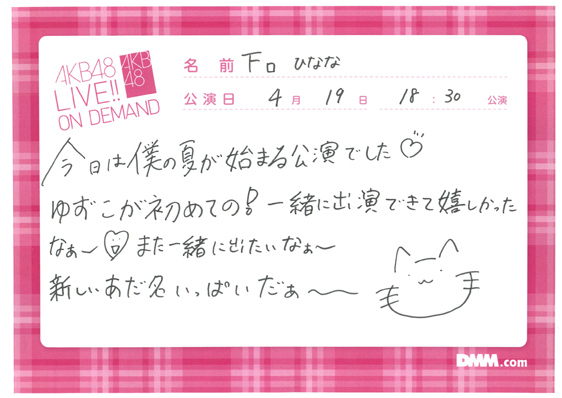 AKB48
LIVE!!
ON DEMAND
AKB
48
名 前 下口 ひなな
公演日 4月 19日 18:30 公演
今日は僕の夏が始まる公演でした♡
ゆずこが初めての! 一緒に出演できて嬉しかった
なぁ〜 また一緒に出たいなぁ〜
新しいあだ名いっぱいだぁ〜〜
DMM.com